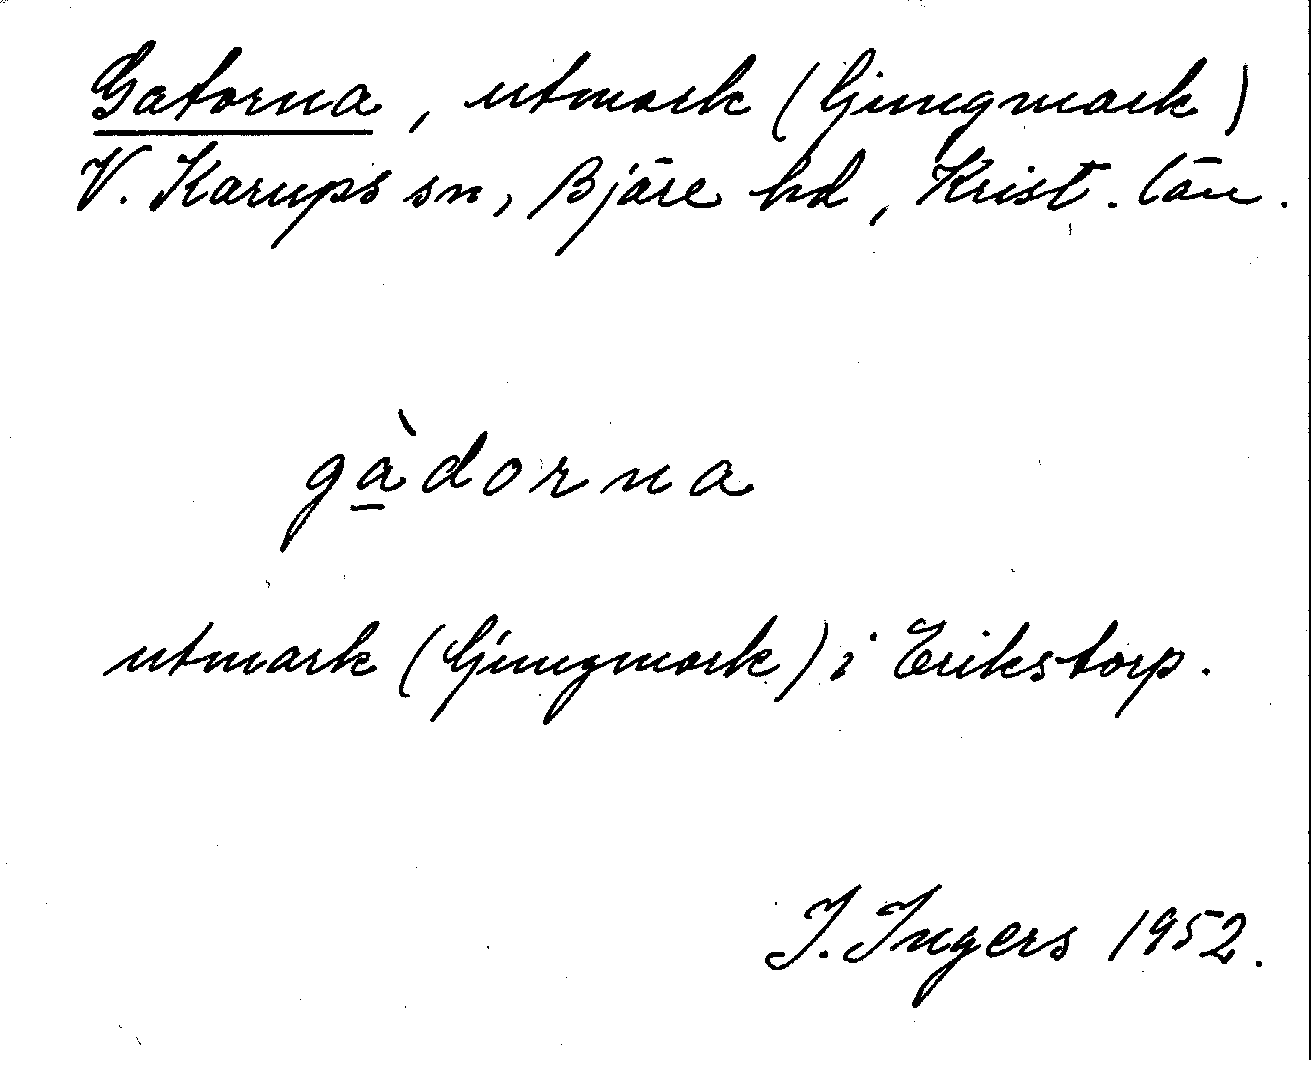 Gatorna, utmark (ljungmark)
V. Karups sn, Bjäre hd, Krist. län.
gàdorna
utmark (ljungmark) i Erikstorp.
I. Ingers 1952.